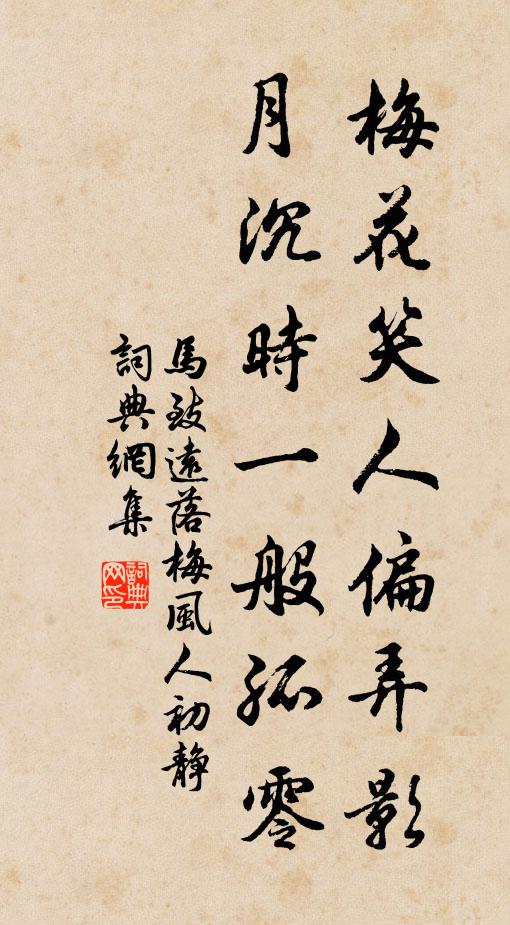 梅花笑人偏弄影
月沉時一般孤零
馬致遠落梅風人初靜
詞典網集
詞典
网印